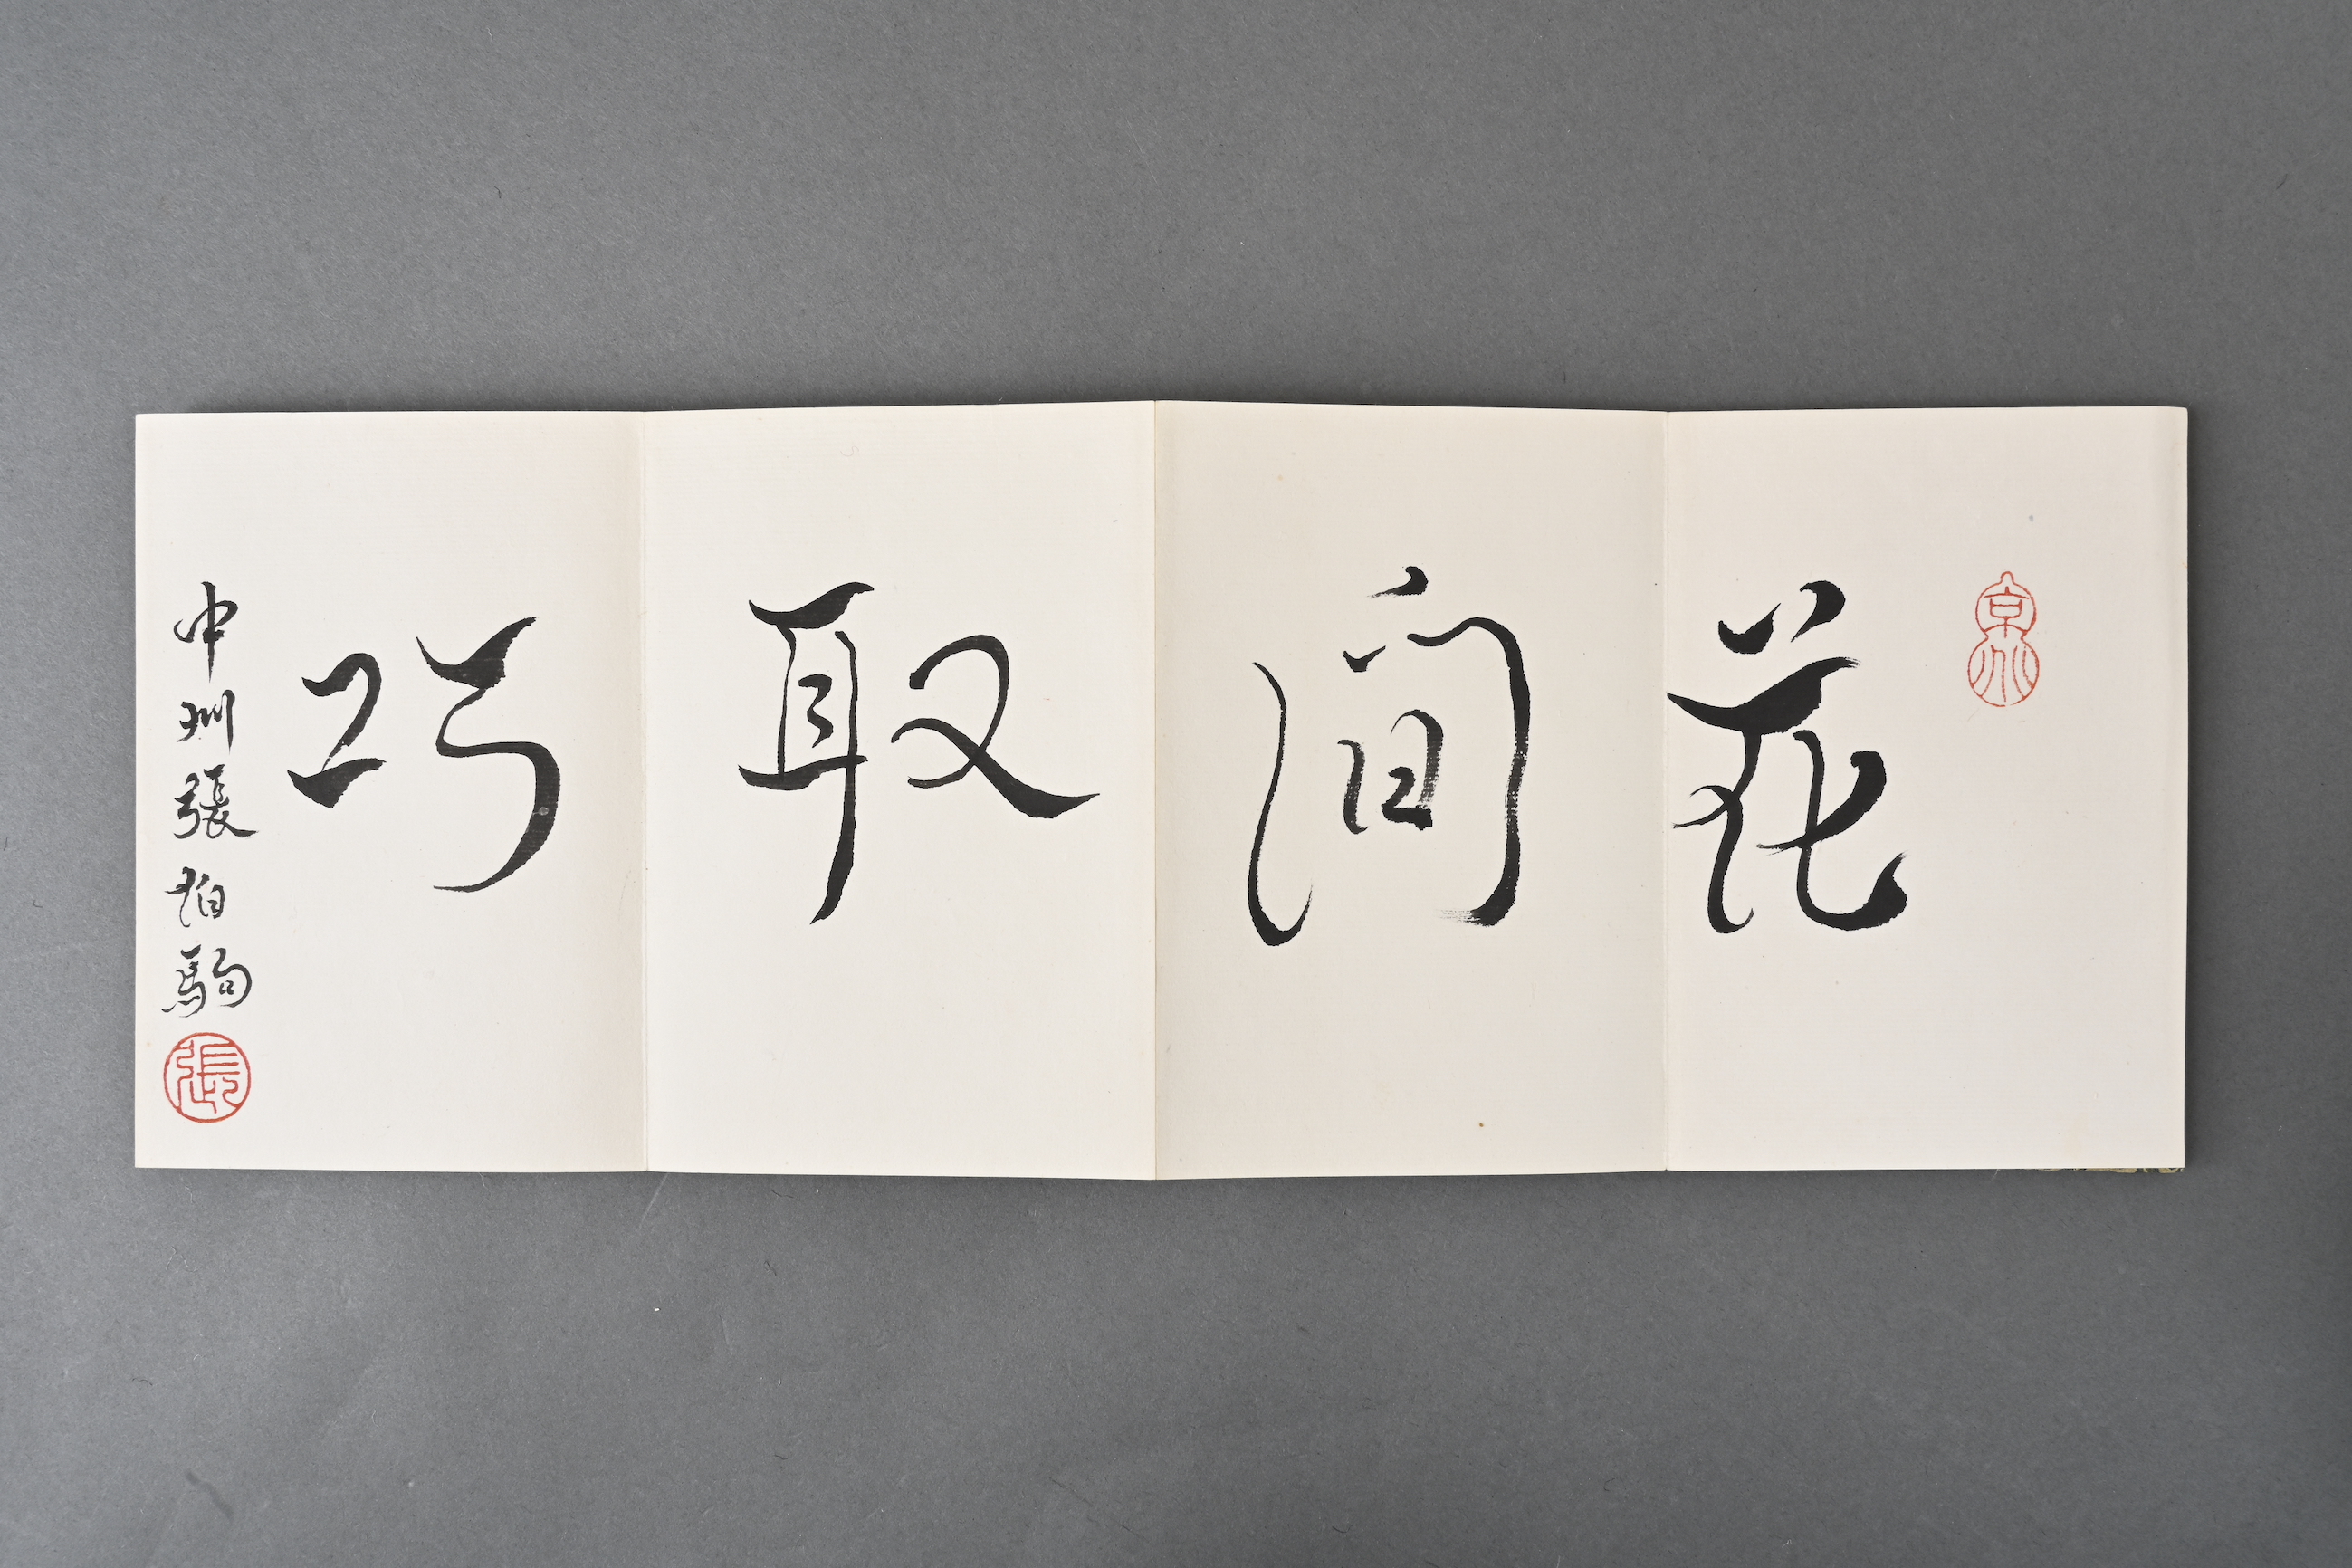 京兆
花間取巧
中州張伯駒
張